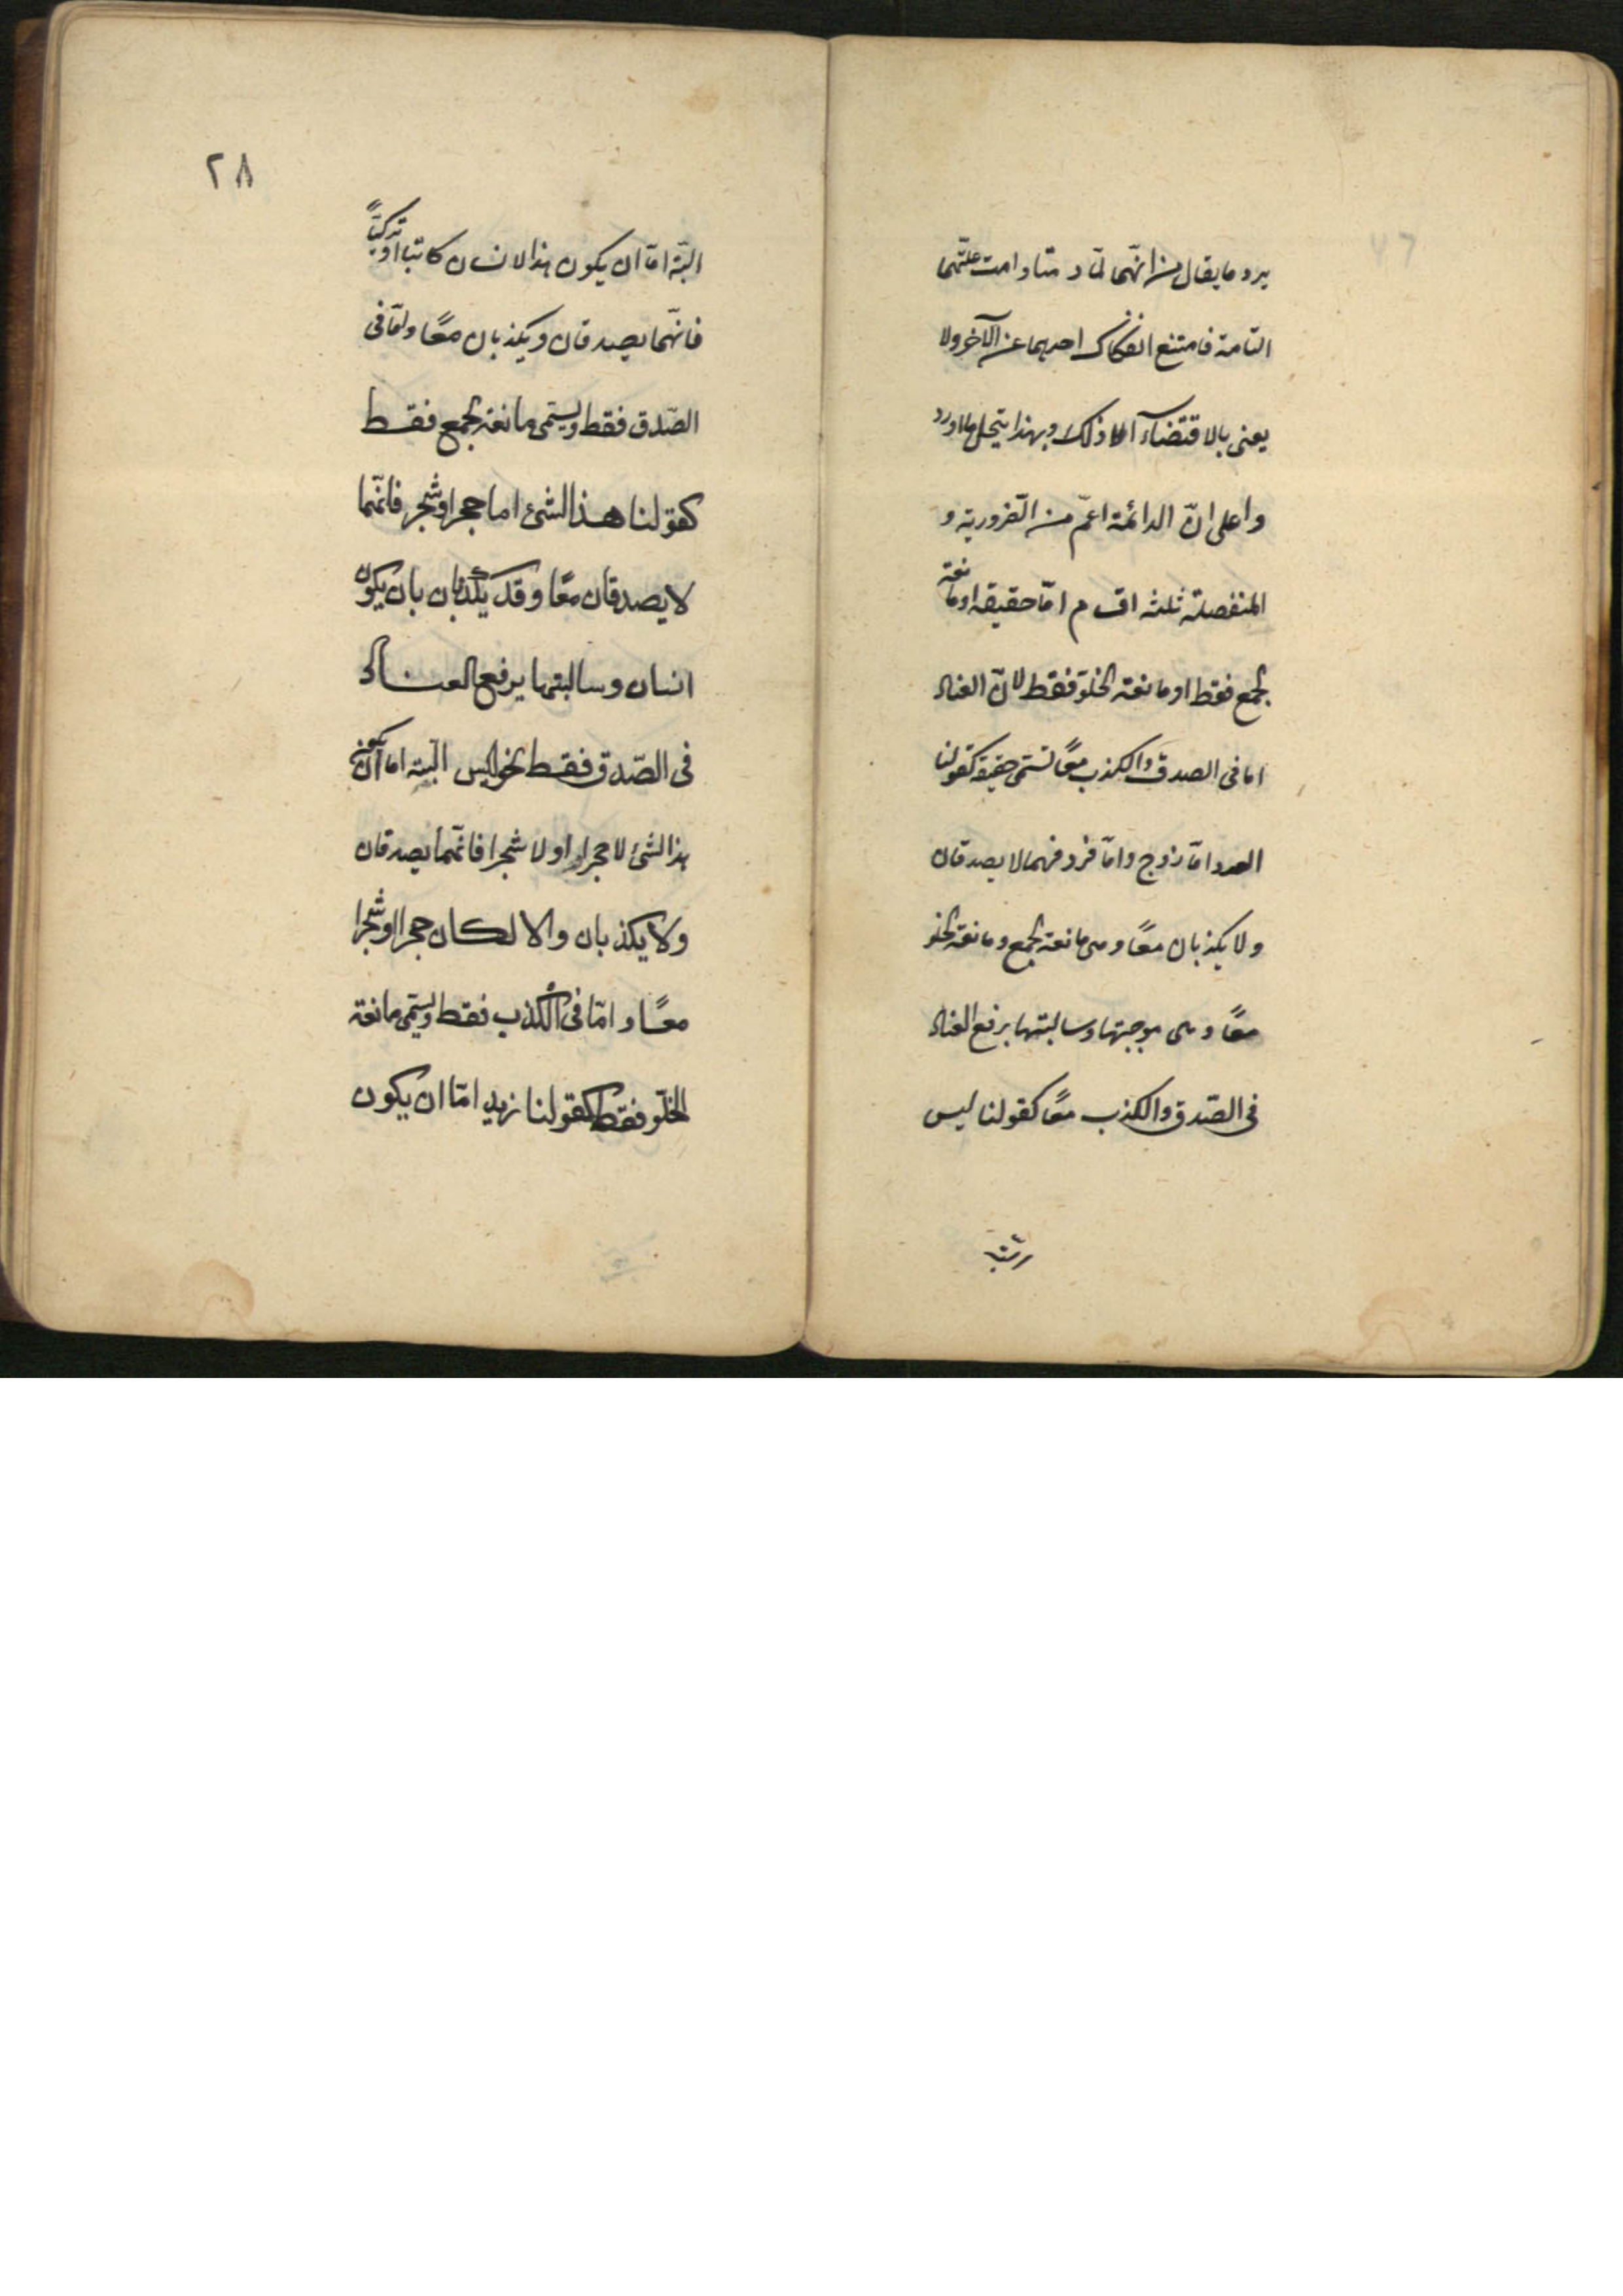 يرد ما يقال من انّهما لمّا د متا دامت علتهما
التامة فامتنع انفكاك احديهما عن الآخر ولا
يعنى بالاقتضاء الا ذلك وبهذا ينحل ما اورد
واعلى انّ الدائمة اعمّ من الضّرورية و
المنفصلة ثلثه اقسام امّا حقيقه او مانعة
الجمع فقط او مانعة الخلوّ فقط لانّ العناد
اما فى الصدق والكذب معًا تسمى حقيقه كقولنا
العدد امّا زوج وامّا فرد فهما لا يصدقان
ولا يكذبان معًا وهى مانعة الجمع ومانعة الخلو
معًا وهى موجبتها وسالبتها برفع العناد
فى الصّدق والكذب معًا كقولنا ليس
البتة
٢٨
البتّة امّا ان يكون هذا الانسان كاتبا او تركيّا
فانّهما يصدقان ويكذبان معًا وامّا فى
الصّدق فقط ويسمّى مانعة الجمع فقط
كقولنا هذا الشئ اما حجر او شجر فانّهما
لا يصدقان معًا وقد يكذبان بان يكون
انسان وسالبتها يرفع العناد
فى الصّدق فقط نحو ليس البتة اما ان يكون
هذا الشئ لا حجرا او لا شجرا فانّهما يصدقان
ولا يكذبان والا لكان حجرا او شجرا
معًا و امّا فى الكذب فقط ويسمّى مانعة
الخلّو فقط كقولنا زيد امّا ان يكون